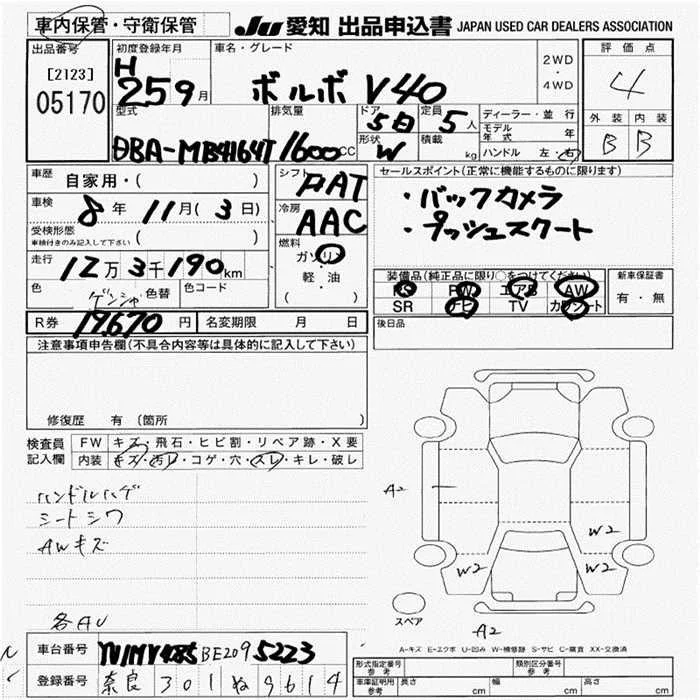 車内保管・守衛保管
JU 愛知 出品申込書 JAPAN USED CAR DEALERS ASSOCIATION
出品番号
[2123]
05170
初度登録年月
H 25 9月
車名・グレード
ボルボ V40
2WD
・
4WD
評価点
4
外装 内装
B B
型式
DBA-MB4164T
排気量
1600 CC
ドア
5日
形状
W
定員
5人
積載
kg
ディーラー・並行
モデル年式 年
ハンドル 左・右
車歴 自家用・( )
車検 8年 11月(3日)
受検形態 ( )
車検付きのみ記入して下さい
走行 12万3千190km
色
色替 色コード
シフト
冷房
AAC
燃料
ガソリン
軽・油
( )
セールスポイント(正常に機能するものに限ります)
・バックカメラ
・プッシュスタート
装備品(純正品に限り○をつけてください)
PS PW エアB AW
SR ナビ TV カワシート
新車保証書
有・無
R券 17,670円
名変期限 月 日
後日品
注意事項申告欄(不具合内容等は具体的に記入して下さい)
修復歴 有 (箇所 )
検査員記入欄
FW キズ・飛石・ヒビ割・リペア跡・X要
内装 キズ・汚レ・コゲ・穴・スレ・キレ・破レ
ハンドルハゲ
シートシワ
AWキズ
各AU
A2
W2
W2
W2
A2
スペア
A-キズ E-エクボ U-凹み W-補修跡 S-サビ C-腐食 XX-交換済
車台番号 BE209 5223
登録番号 奈良 301 ぬ 9614
形式指定番号
参考
類別区分番号
参考
車庫証明用
参考
長さ cm 幅 cm 高さ cm